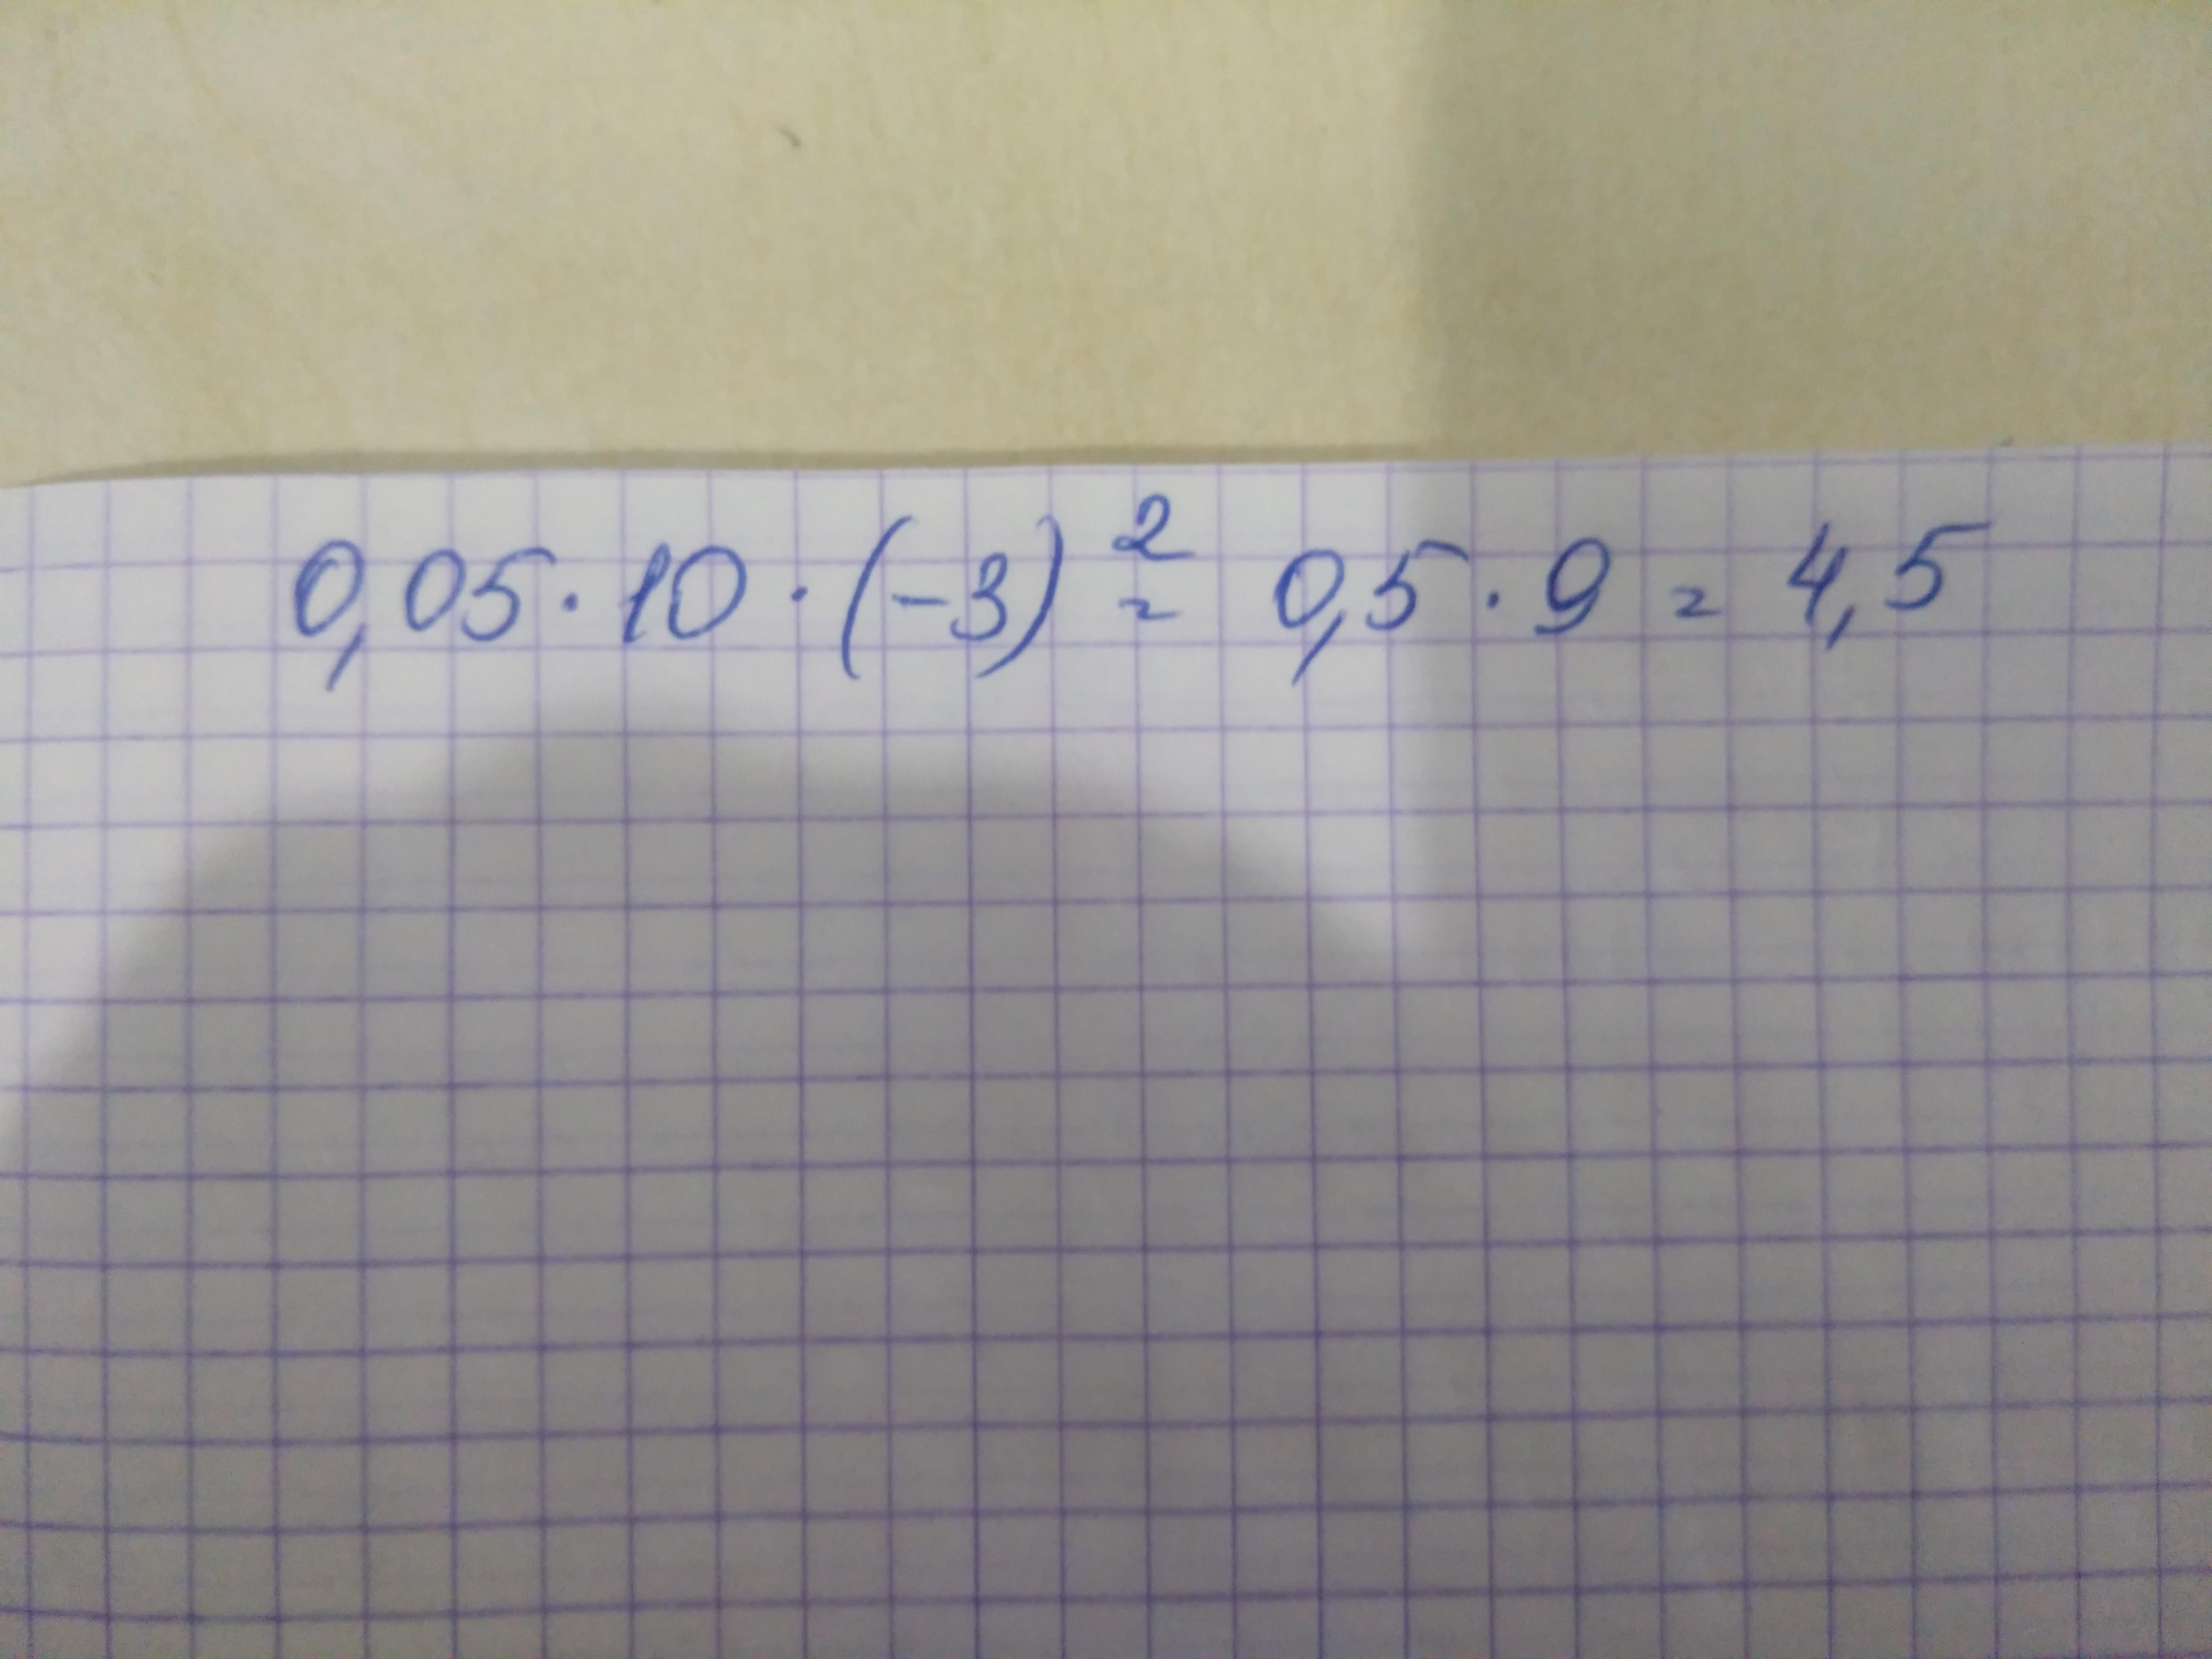 0,05 · 10 · (-3)² = 0,5 · 9 = 4,5